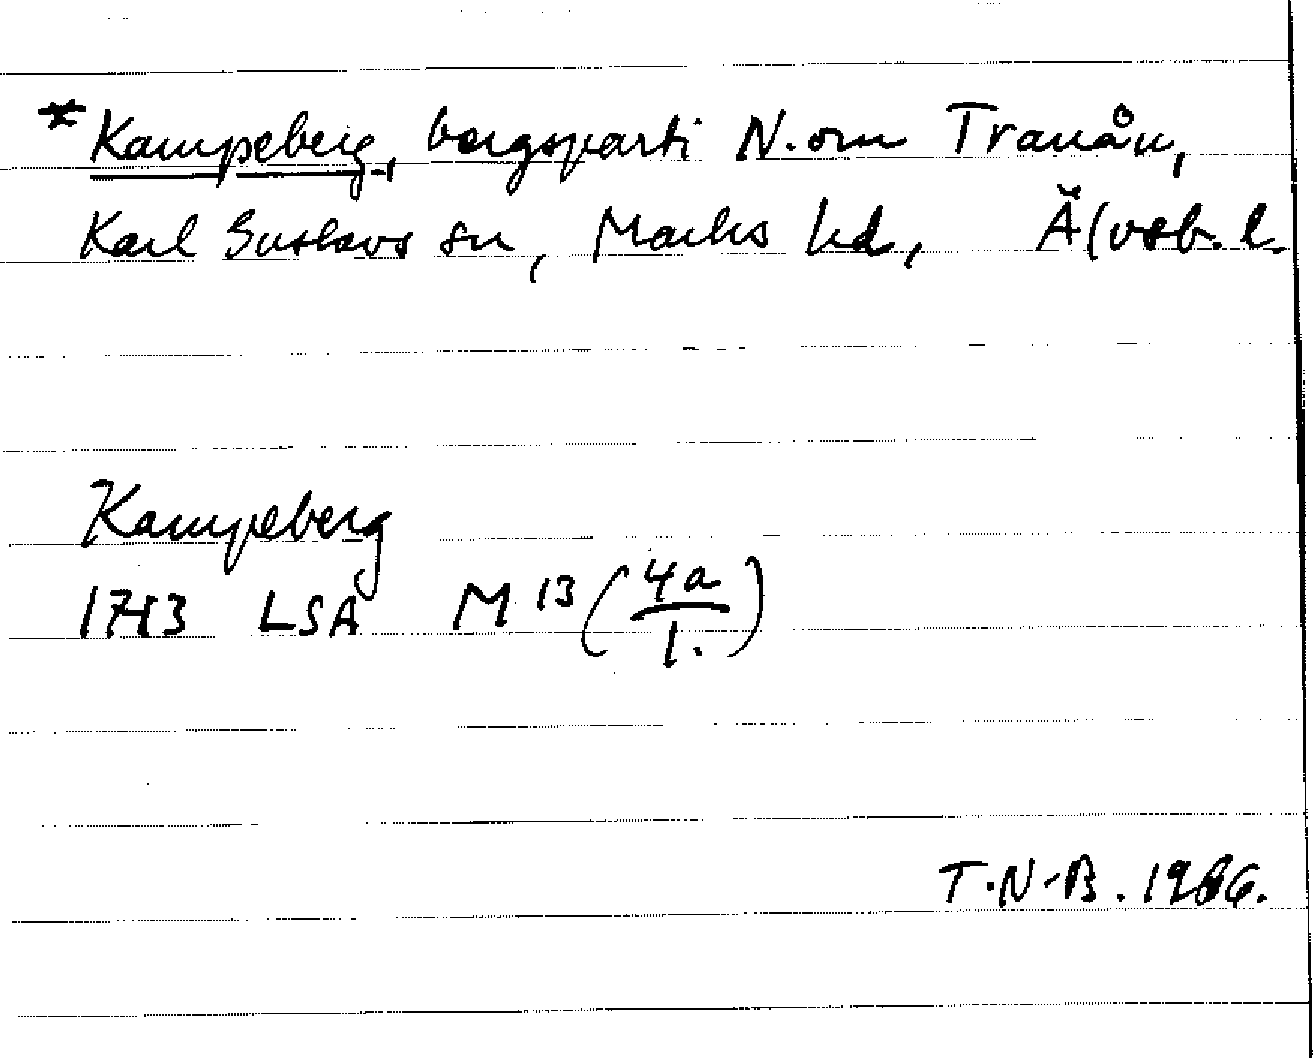 *Kampeberg, bergsparti N. om Tranån,
Karl Gustavs sn, Marks hd, Älvsb. l.
Kampeberg
1743 LSA M 13 (4a/1.)
T.N-B. 1986.